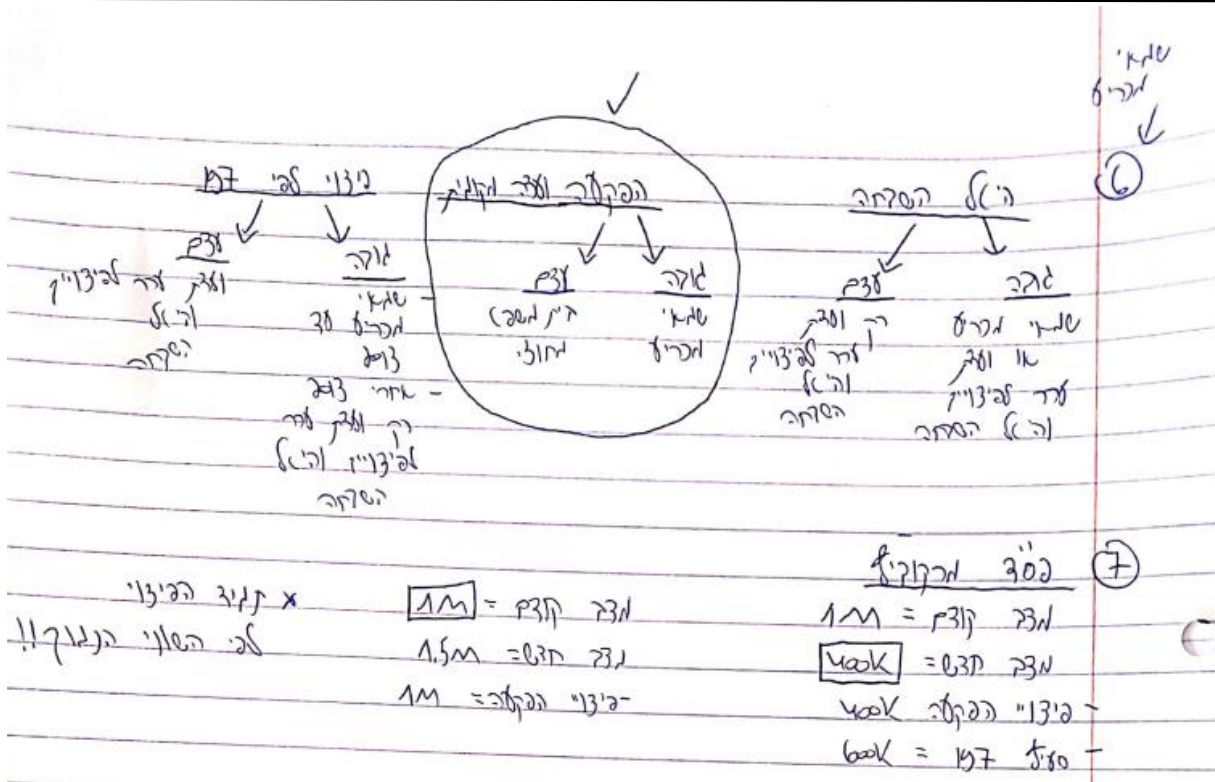 שמאי
מכריע
6
היטל השבחה
גובה
שמאי מכריע
או ועדת
ערר לפיצויים
והיטל השבחה
עצם
רק ועדת
ערר לפיצויים
והיטל
השבחה
הפקעה ועדה מקומית
גובה
שמאי
מכריע
עצם
בית משפט
מחוזי
פיצוי לפי 197
גובה
- שמאי
מכריע עד
- אחרי
רק ועדת ערר
לפיצויים והיטל
השבחה
עצם
ועדת ערר לפיצויים
והיטל
השבחה
7
פס"ד מרקוביץ
מצב קודם = 1M
מצב חדש = 400K
- פיצויי הפקעה 400K
- סעיף 197 = 600K
מצב קודם = 1M
מצב חדש = 1.5M
- פיצויי הפקעה = 1M
* תגיד הפיצוי
לפי השווי הנמוך!!